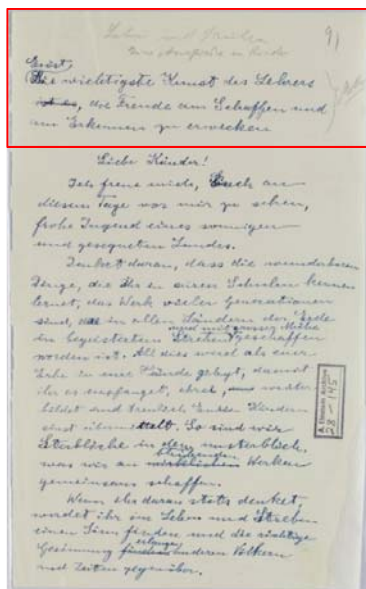 Lehren und
Eine Ansprache an Kinder
91
Es ist
Die wichtigste Kunst des Lehrers
ist es, die Freude am Schaffen und
am Erkennen zu erwecken
Liebe Kinder!
Ich freue mich, Euch an
diesem Tage vor mir zu sehen,
frohe Jugend eines sonnigen
und gesegneten Landes.
Denket daran, dass die wunderbaren
Dinge, die Ihr in euren Schulen kennen
lernet, das Werk vieler Generationen
sind, das in allen Ländern der Erde
und mit grosser Mühe
in begeistertem Streben geschaffen
worden ist. All dies wird als euer
Erbe in eure Hände gelegt, damit
ihr es empfanget, ehret, weiter
bildet und treulich Euren Kindern
einst übermittelt. So sind wir
Sterbliche in dem unsterblich,
was wir an bleibenden Werken
gemeinsam schaffen.
Wenn ihr daran stets denket,
werdet ihr im Leben und Streben
einen Sinn finden und die richtige
erlangen
Gesinnung anderen Völkern
und Zeiten gegenüber.
28-145